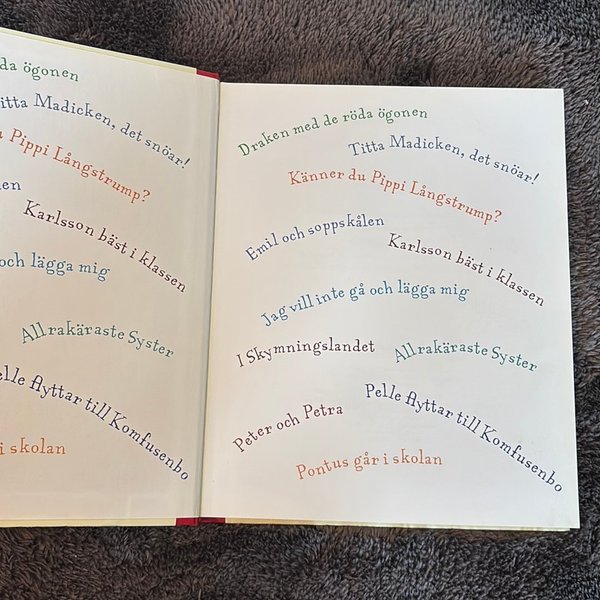 da ögonen
itta Madicken, det snöar!
u Pippi Långstrump?
len
Karlsson bäst i klassen
och lägga mig
Allrakäraste Syster
elle flyttar till Komfusenbo
i skolan
Draken med de röda ögonen
Titta Madicken, det snöar!
Känner du Pippi Långstrump?
Emil och soppskålen
Karlsson bäst i klassen
Jag vill inte gå och lägga mig
I Skymningslandet
Allrakäraste Syster
Pelle flyttar till Komfusenbo
Peter och Petra
Pontus går i skolan